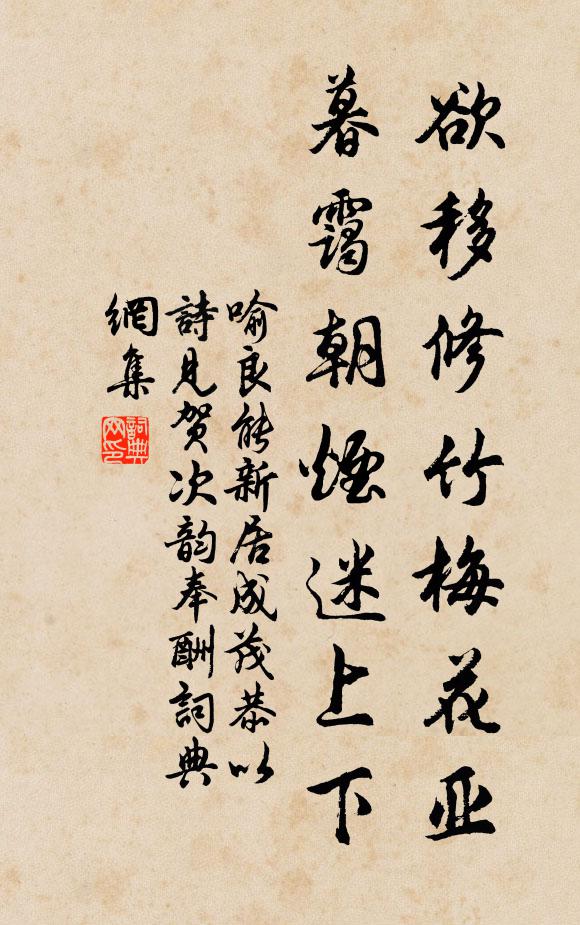 欲移修竹梅花亚
暮霭朝煙迷上下
喻良能新居成茂恭以
詩見贺次韵奉酬詞典
網集
詞典
网印